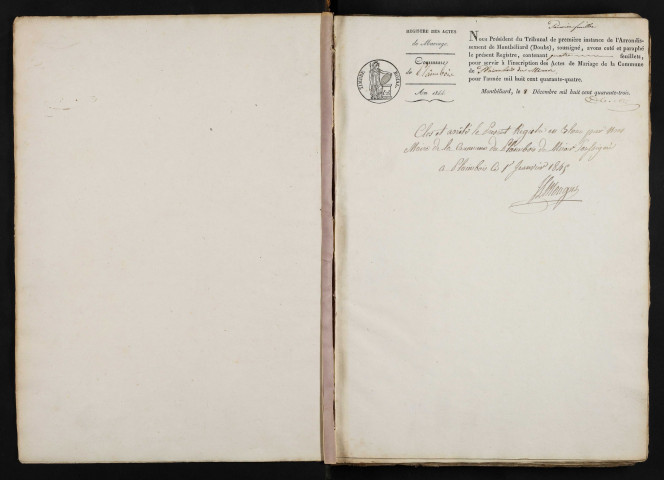 Première feuille
REGISTRE DES ACTES
de Mariage.
Commune
de Plaimbois
TIMBRE ROYAL
An 1844
Nous Président du Tribunal de première instance de l'Arrondis-
sement de Montbéliard (Doubs), soussigné, avons coté et paraphé
le présent Registre, contenant quatre feuillets,
pour servir à l'inscription des Actes de Mariage de la Commune
de Plaimbois du Miroir
pour l'année mil huit cent quarante-quatre.
Montbéliard, le 8 Décembre mil huit cent quarante-trois.
Clos et arrêté le présent Registre en blanc par nous
Maire de la Commune de Plaimbois du Miroir soussigné
a Plaimbois le 1er Janvier 1845